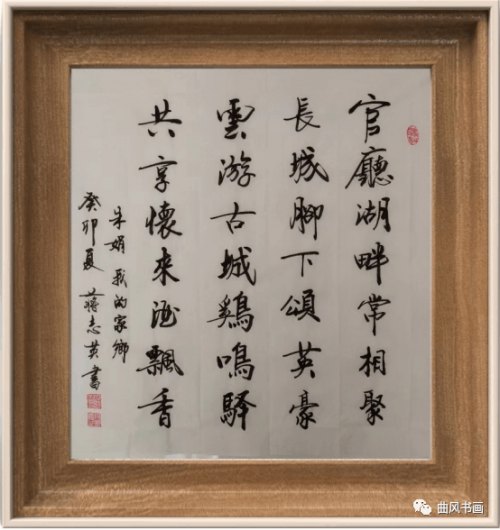 官廳湖畔常相聚
長城腳下頌英豪
雲游古城鷄鳴驿
共享懷来酒飄香
朱娟 我的家鄉
癸卯夏 蔣志英書
曲风书画